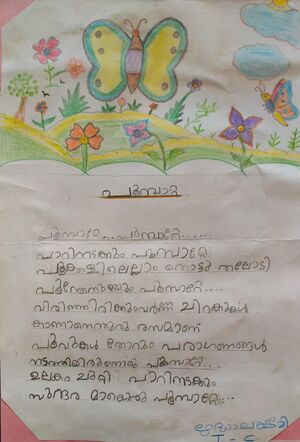 പൂമ്പാറ്റ
പൂമ്പാറ്റേ... പൂമ്പാറ്റേ......
പാറിനടക്കും പൂമ്പാറ്റേ
പൂക്കളിലെല്ലാം തൊട്ടു തലോടി
പൂന്തേനുണ്ണും പൂമ്പാറ്റേ...
വിരിഞ്ഞിരിക്കുംവർണ്ണ ചിറകുകൾ
കാണാനെന്തുരു രസമാണ്
പൂവുകൾ തോറും പരാഗണങ്ങൾ
നടത്തിയിരുന്നൊരു പൂമ്പാറ്റേ...
ഉലകം ചുറ്റി പാറിനടക്കും
സുന്ദര മാകെന്നെ പൂമ്പാറ്റേ...